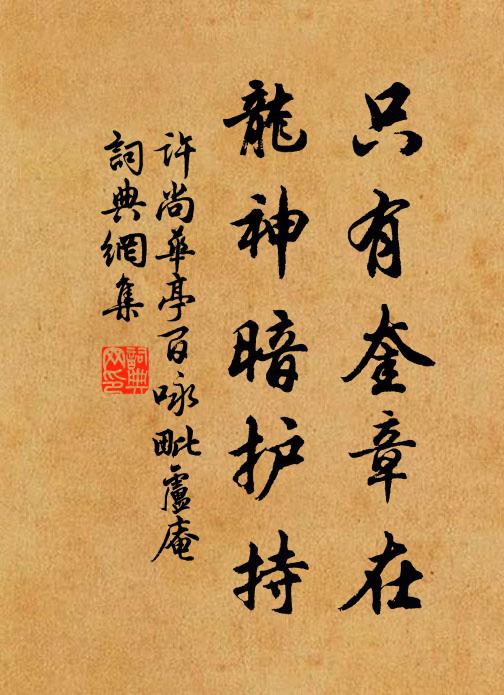 只有奎章在
龍神暗护持
许尚華亭百咏毗盧庵
詞典網集
詞典网印